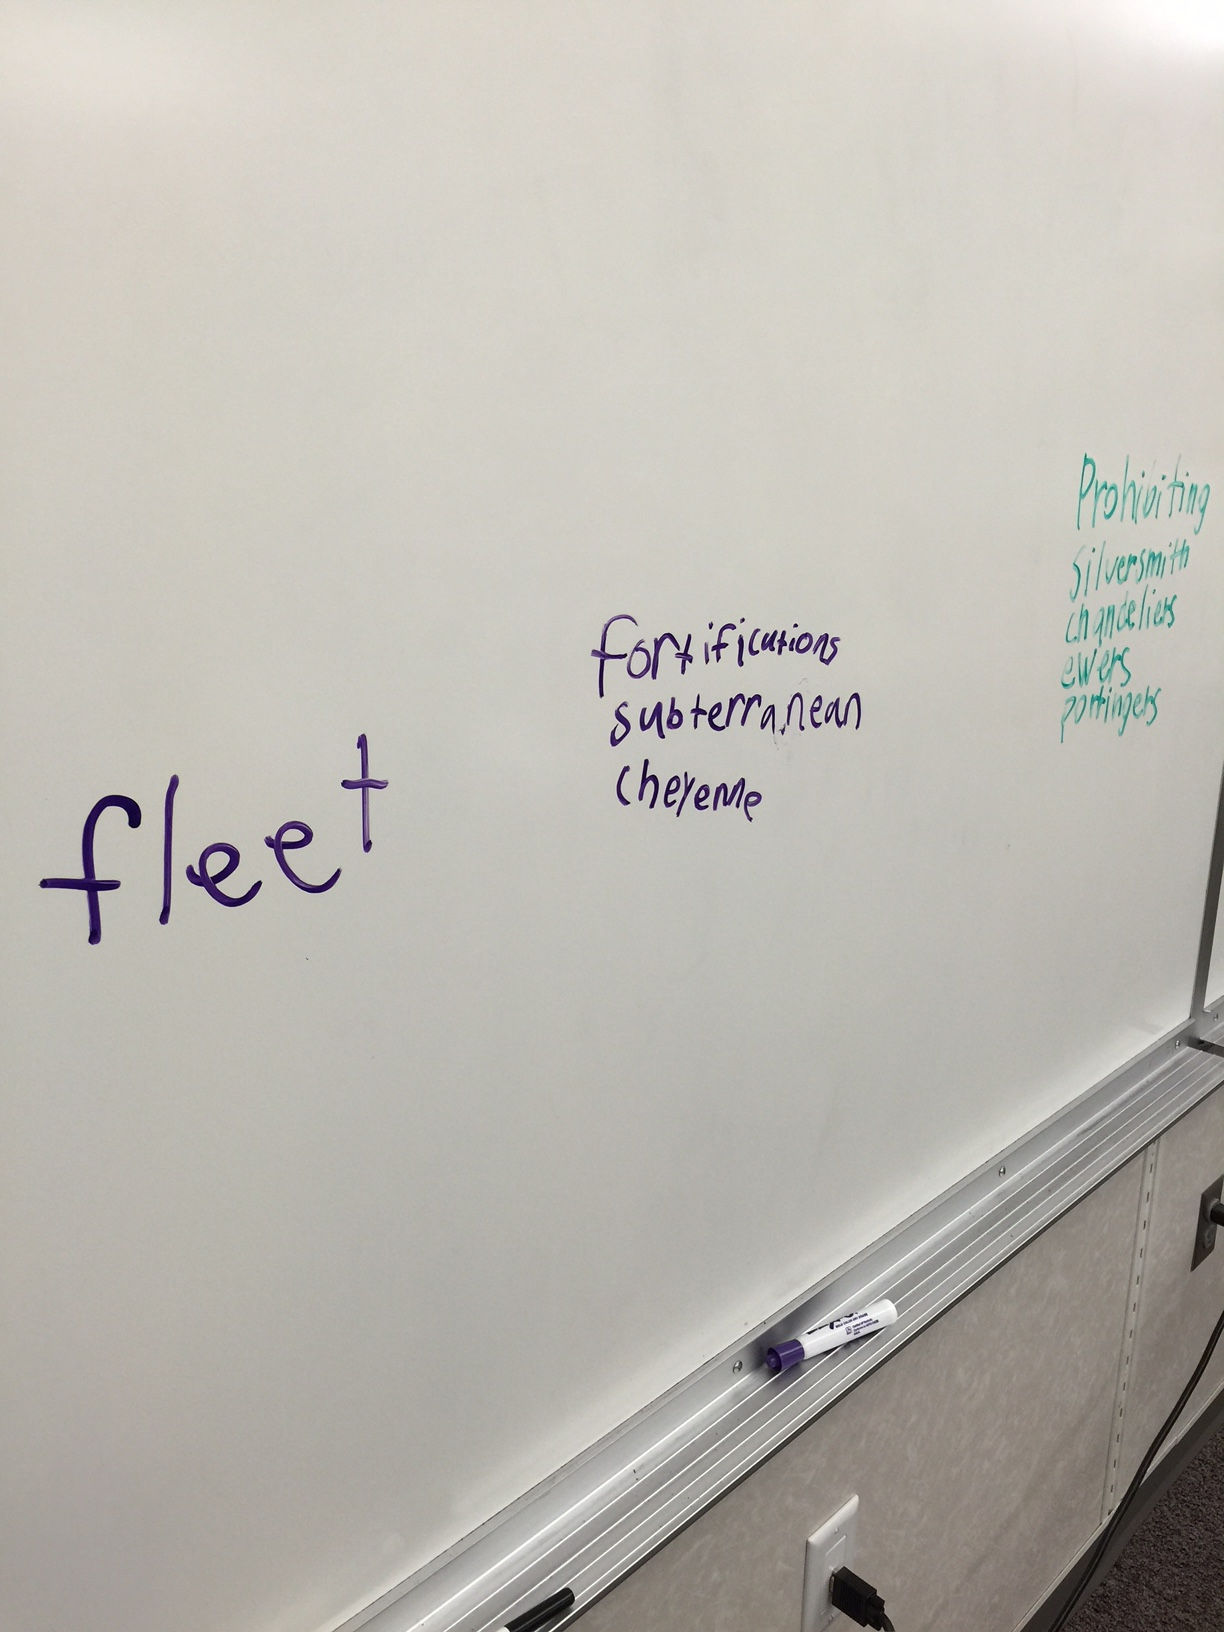 fleet
fortifications
subterranean
cheyenne
Prohibiting
Silversmith
chandeliers
ewers
porringers